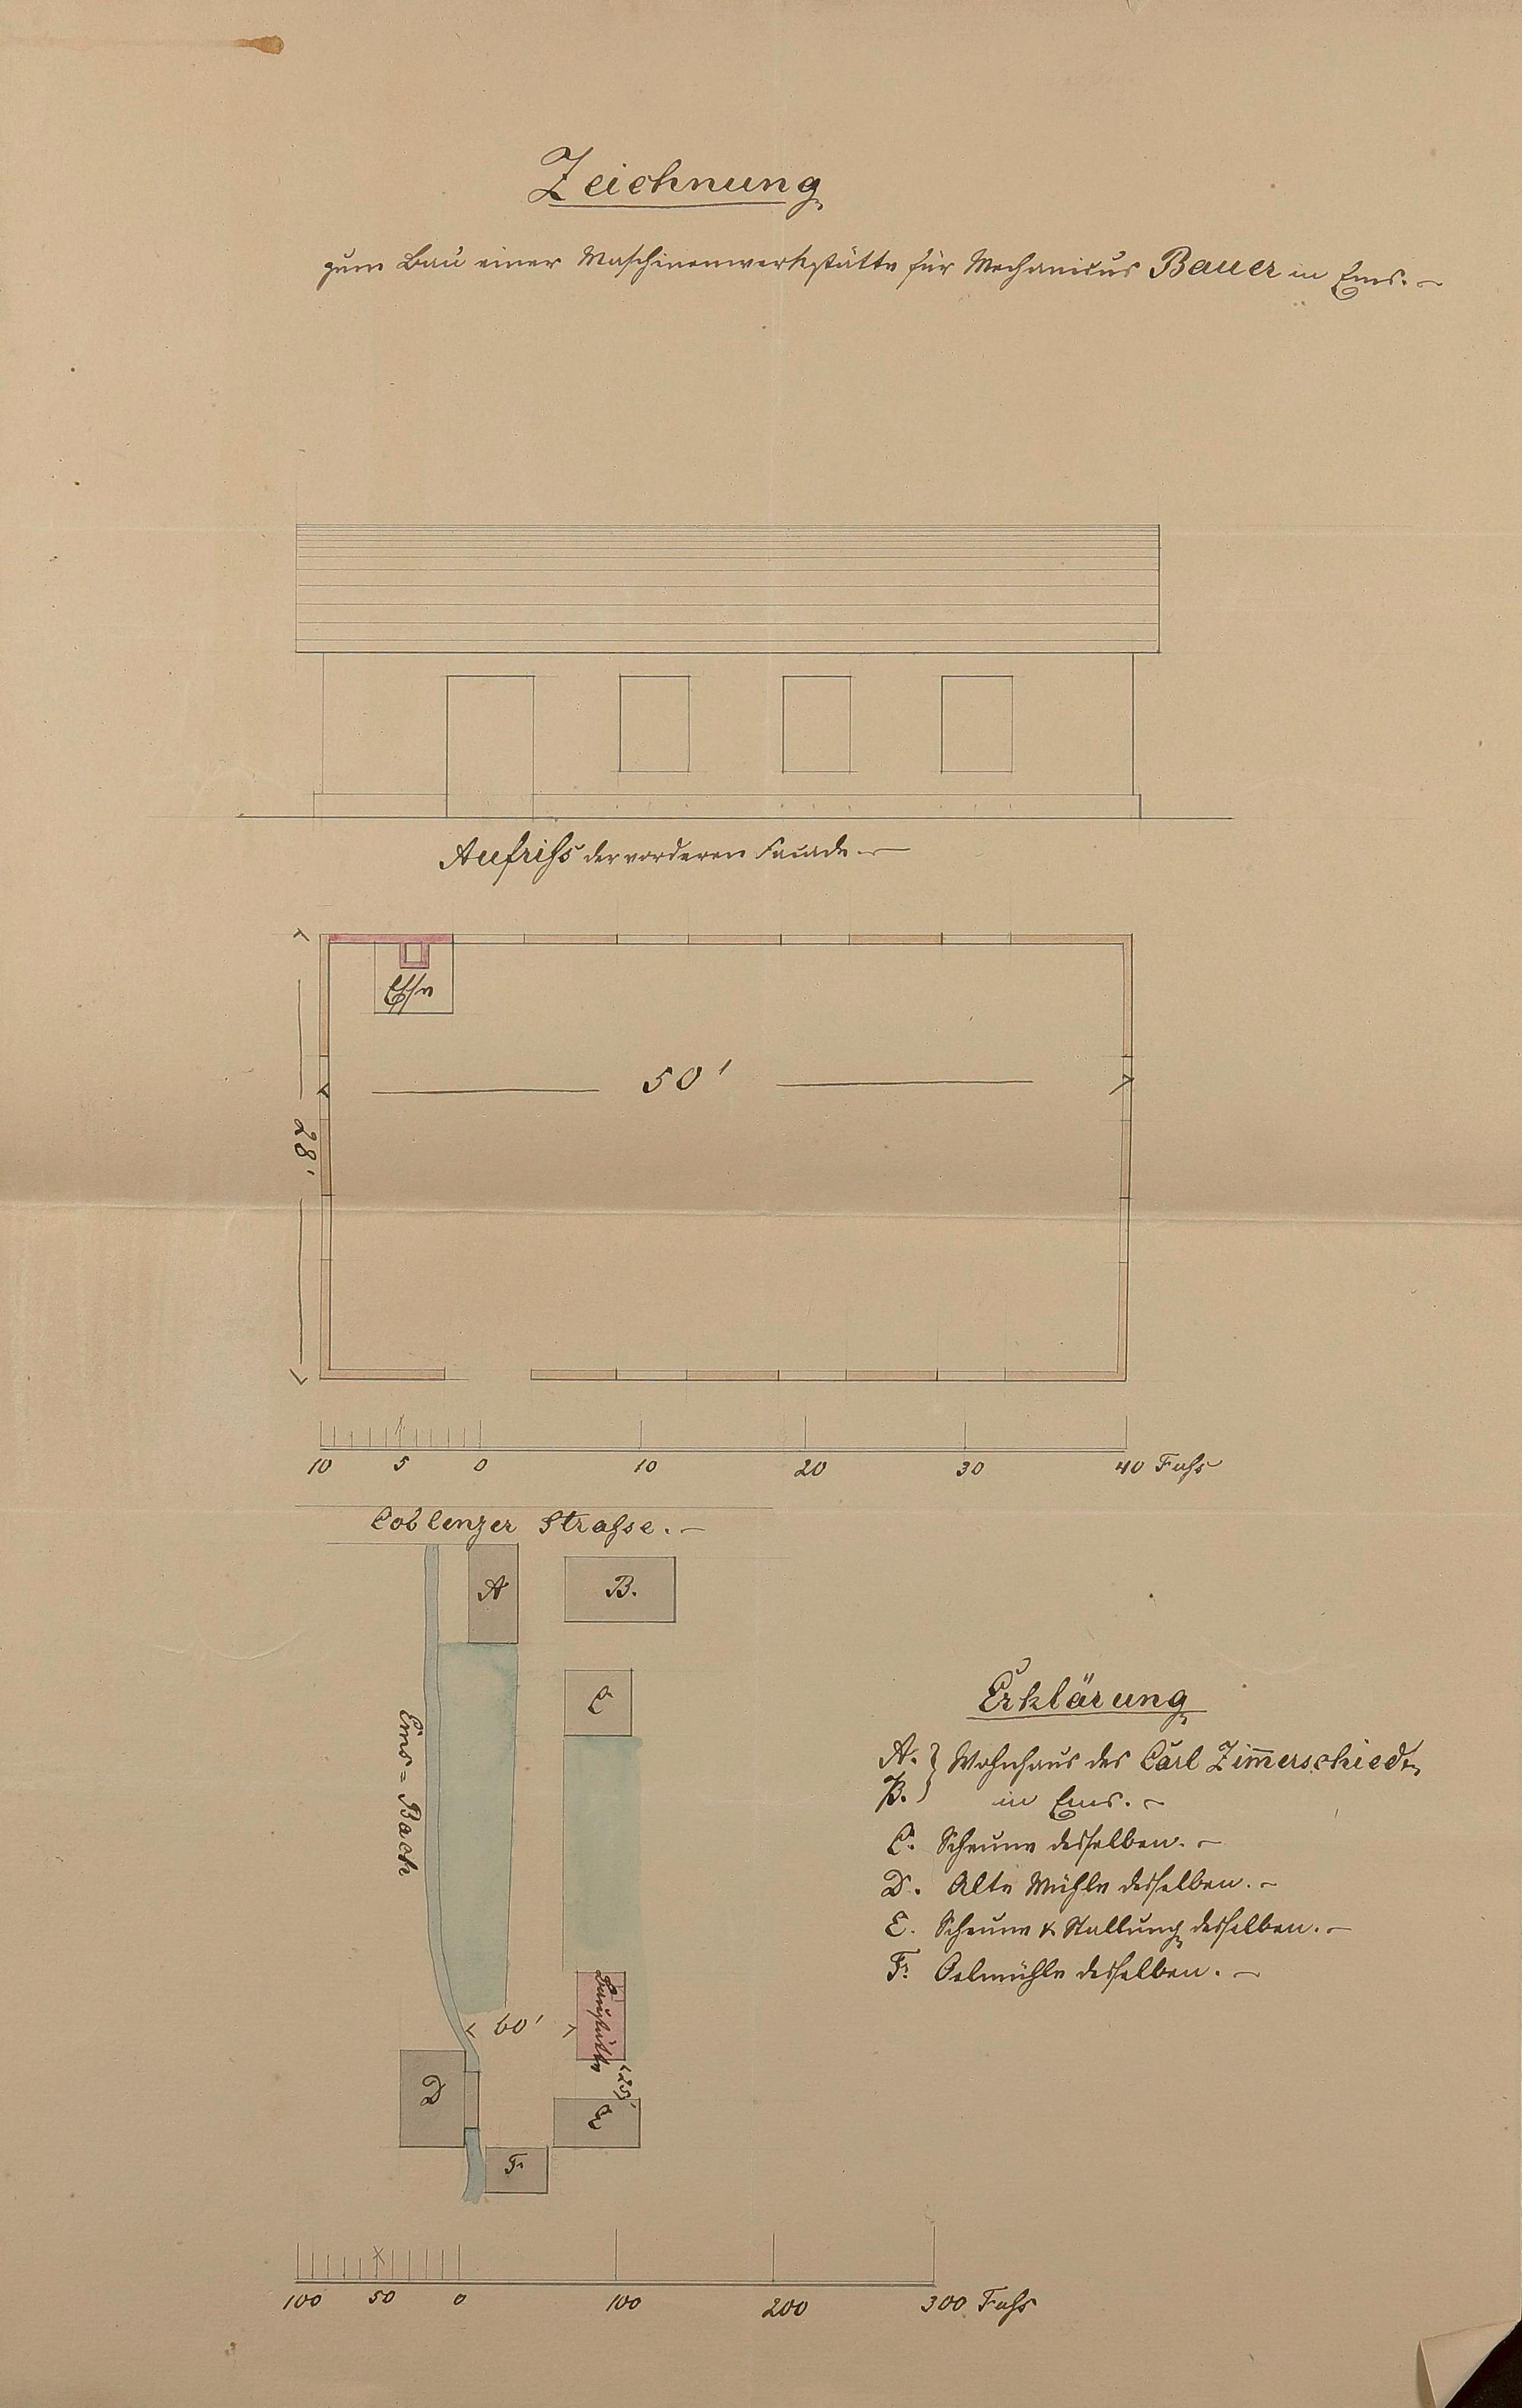 Zeichnung
zum Bau einer Maschinenwerkstätte für Mechanicus Bauer in Ems. –
Aufriſs der vorderen Facade –
Esse
50'
28'
10 5 0 10 20 30 40 Fuſs
Coblenzer Straſse. –
A
B.
C
Ems = Bach
Baustelle
60'
25'
D
E
F.
100 50 0 100 200 300 Fuſs
Erklärung
A. } Wohnhaus des Carl Zim̅erschied
B. } in Ems. –
C. Scheune desselben. –
D. Alte Mühle desselben. –
E. Scheune & Stallung desselben. –
F. Oelmühle desselben. –